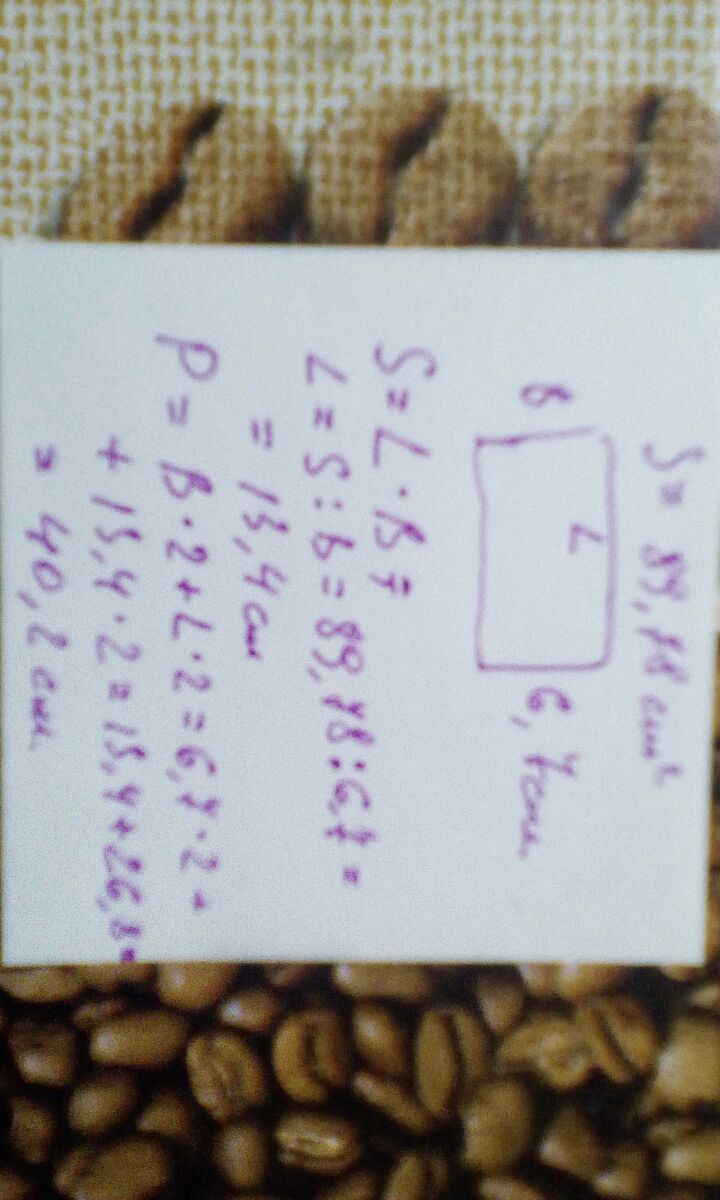 S = 89,78 см²
L
в 6,7 см.
S = L · B;
L = S : в = 89,78 : 6,7 =
= 13,4 см
P = B · 2 + L · 2 = 6,7 · 2 +
+ 13,4 · 2 = 13,4 + 26,8 =
= 40,2 см.